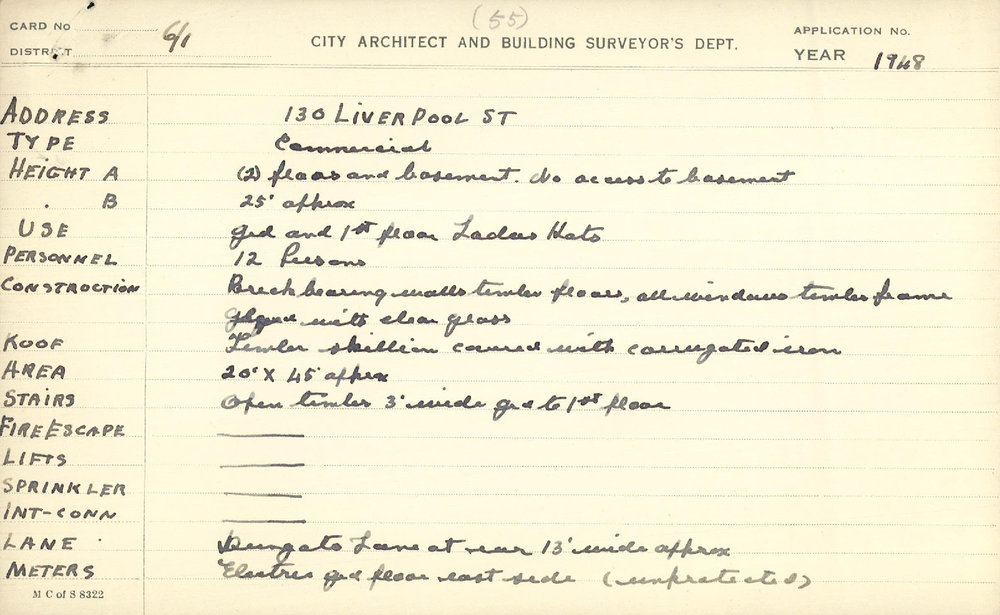 (55)
CARD No
6/1
DISTRICT
CITY ARCHITECT AND BUILDING SURVEYOR'S DEPT.
APPLICATION No.
YEAR 1948
ADDRESS 130 LIVERPOOL ST
TYPE Commercial
HEIGHT A (2) floors and basement. No access to basement
. B 25' approx
USE grd and 1st floor Ladies Hats
PERSONNEL 12 Persons
CONSTRUCTION Brick bearing walls timber floors, all windows timber frame
glazed with clear glass
ROOF Timber skillion covered with corrugated iron
AREA 20' X 45' approx
STAIRS Open timber 3' wide grd to 1st floor
FIRE ESCAPE ———
LIFTS ———
SPRINKLER ———
INT-CONN ———
LANE Lane at rear 13' wide approx
METERS Electric grd floor east side (unprotected)
M C of S 8322